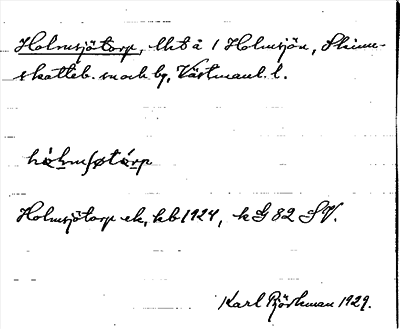 Holmsjötorp, lht å 1 Holmsjön, Skinn-
skatteb. sn och bg, Västmanl. l.
Holmsjötorp ek, hb 1924, k G 82 SV.
Karl Björkman 1929.